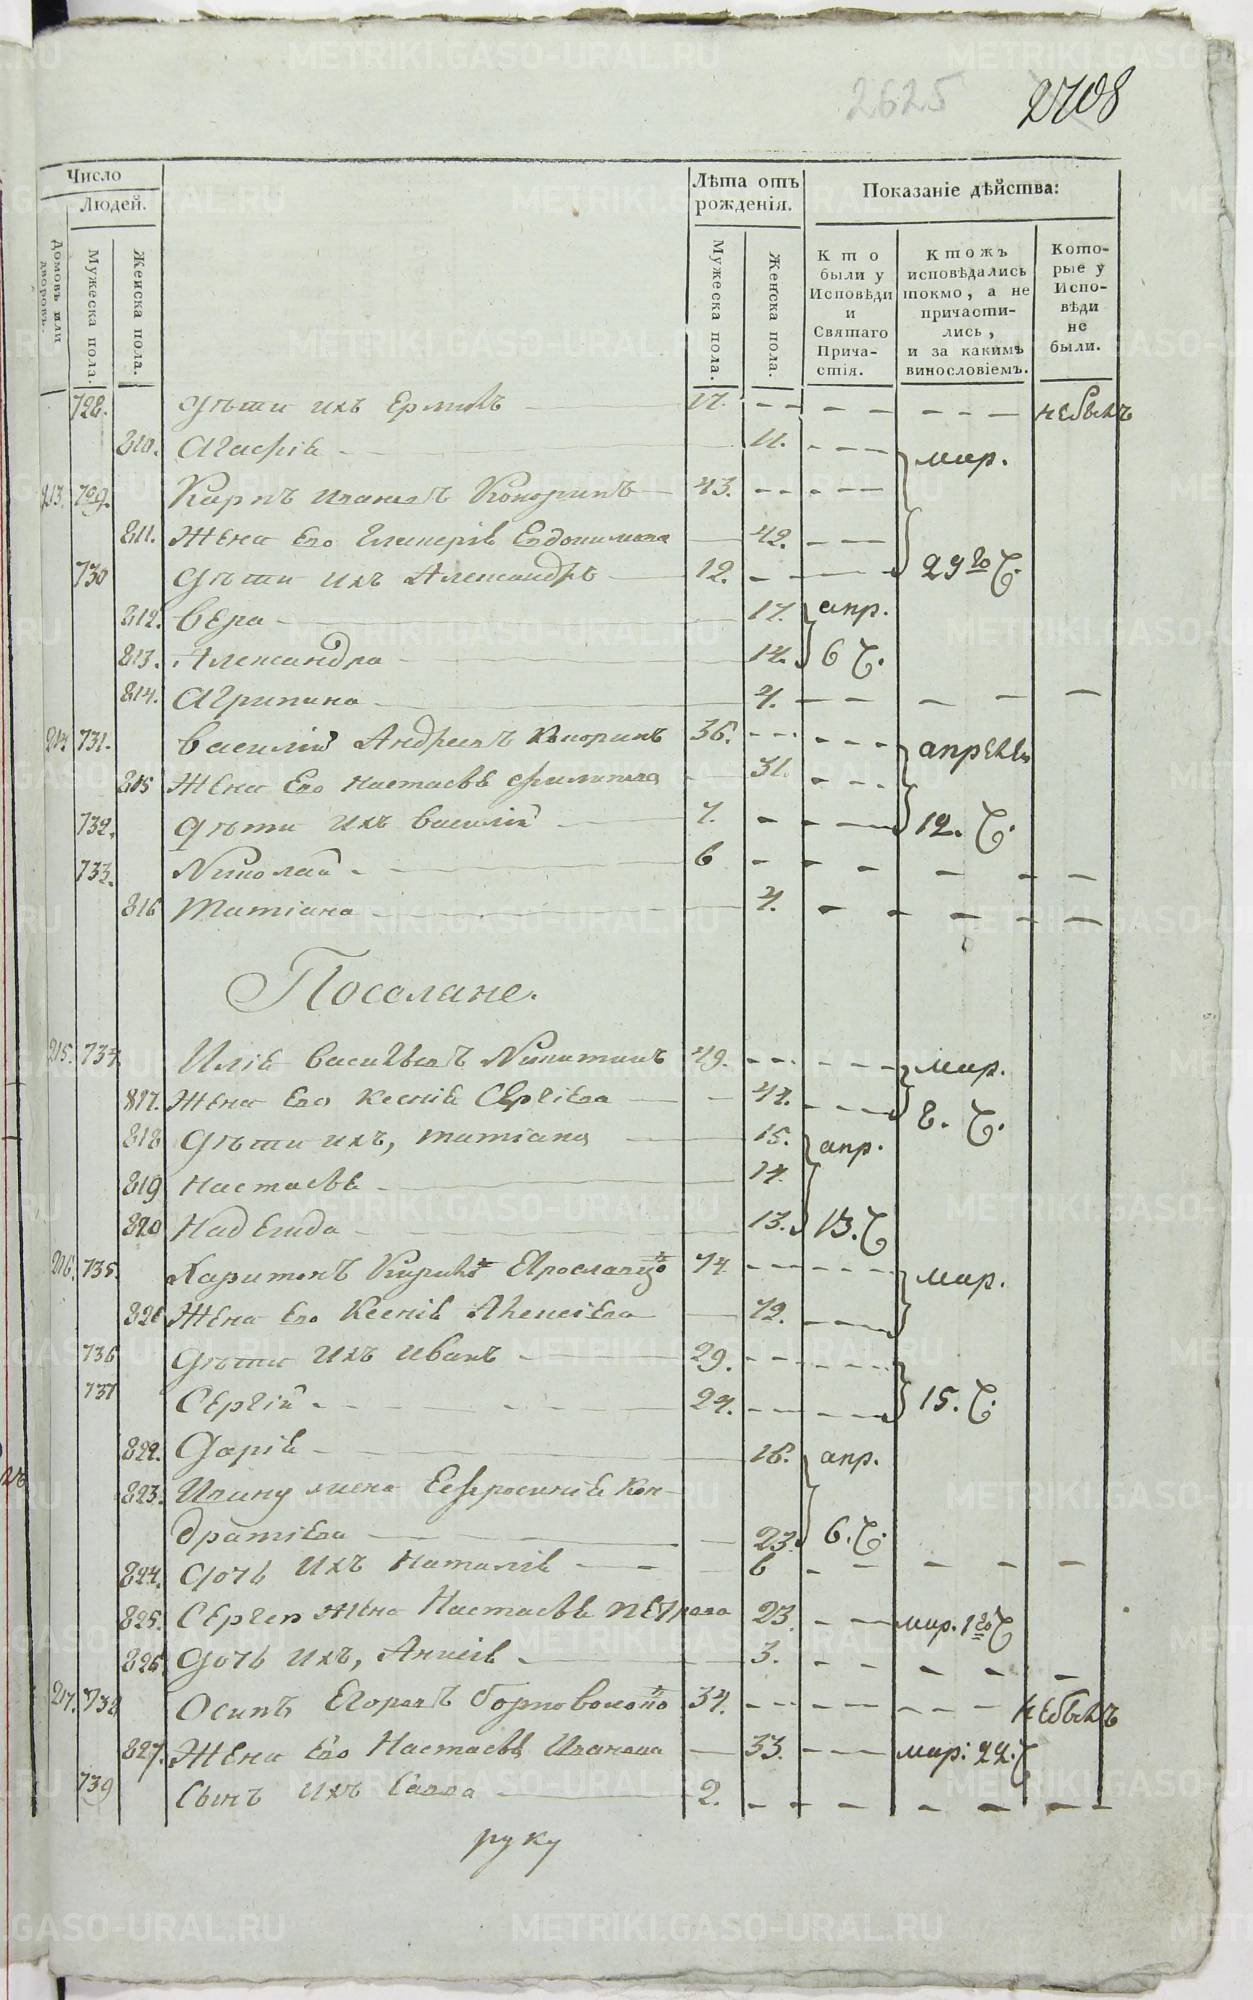 2625 2708
Число
Людей.
Домовъ или дворовъ.
Мужеска пола.
Женска пола.
Лѣта отъ рожденія.
Мужеска пола.
Женска пола.
Показаніе дѣйства:
Кто были у Исповѣди и Святаго Причастія.
Ктожъ исповѣдались токмо, а не причастились, и за какимъ винословіемъ.
Которые у Исповѣди не были.
728. Дѣти ихъ Ермилъ 17. небылъ
810. Агафія 11. мар.
213. 729. Карпъ Ивановъ Кокоринъ 43.
811. Жена Его Гликерія Евдокимова 42.
730 Дѣти ихъ Александръ 12. 29го Ч.
812. Вера 17. апр.
813. Александра 14. 6 Ч.
814. Агрипина 4.
214 731. Василій Андреевъ Кокоринъ 36. апреля
815 Жена Его Настасья Филипова 31.
732. Дѣти Ихъ Василій 7. 12. Ч.
733. Николай 6
816 Татіана 4.
Поселяне.
215. 734. Илія Васильевъ Никитинъ 49. мар.
817. Жена Его Ксенія Сергіева 47. 8. Ч.
818 Дѣти ихъ, татіана 15. апр.
819 Настасья 14.
820 Надежда 13. 13. Ч
216. 735. Харитонъ 74 мар.
821 Жена Его Ксенія 72.
736 Дѣти Ихъ Иванъ 29.
737 Сергій 24. 15. Ч.
822. Дарія 16. апр.
823. Ивану жена Ефросинія Кон-
дратіева 23. 6. Ч.
824. Дочь Ихъ Наталія 6
825. Сергея Жена Настасья Петрова 23. мар. 1го Ч
826. Дочь Ихъ, Анисія 3.
217. 738 Осипъ Егоровъ 34. небылъ
827. Жена Его Настасья Иванова 33. мар: 22. Ч
739 Сынъ Ихъ Савва 2.
руку
METRIKI.GASO-URAL.RU